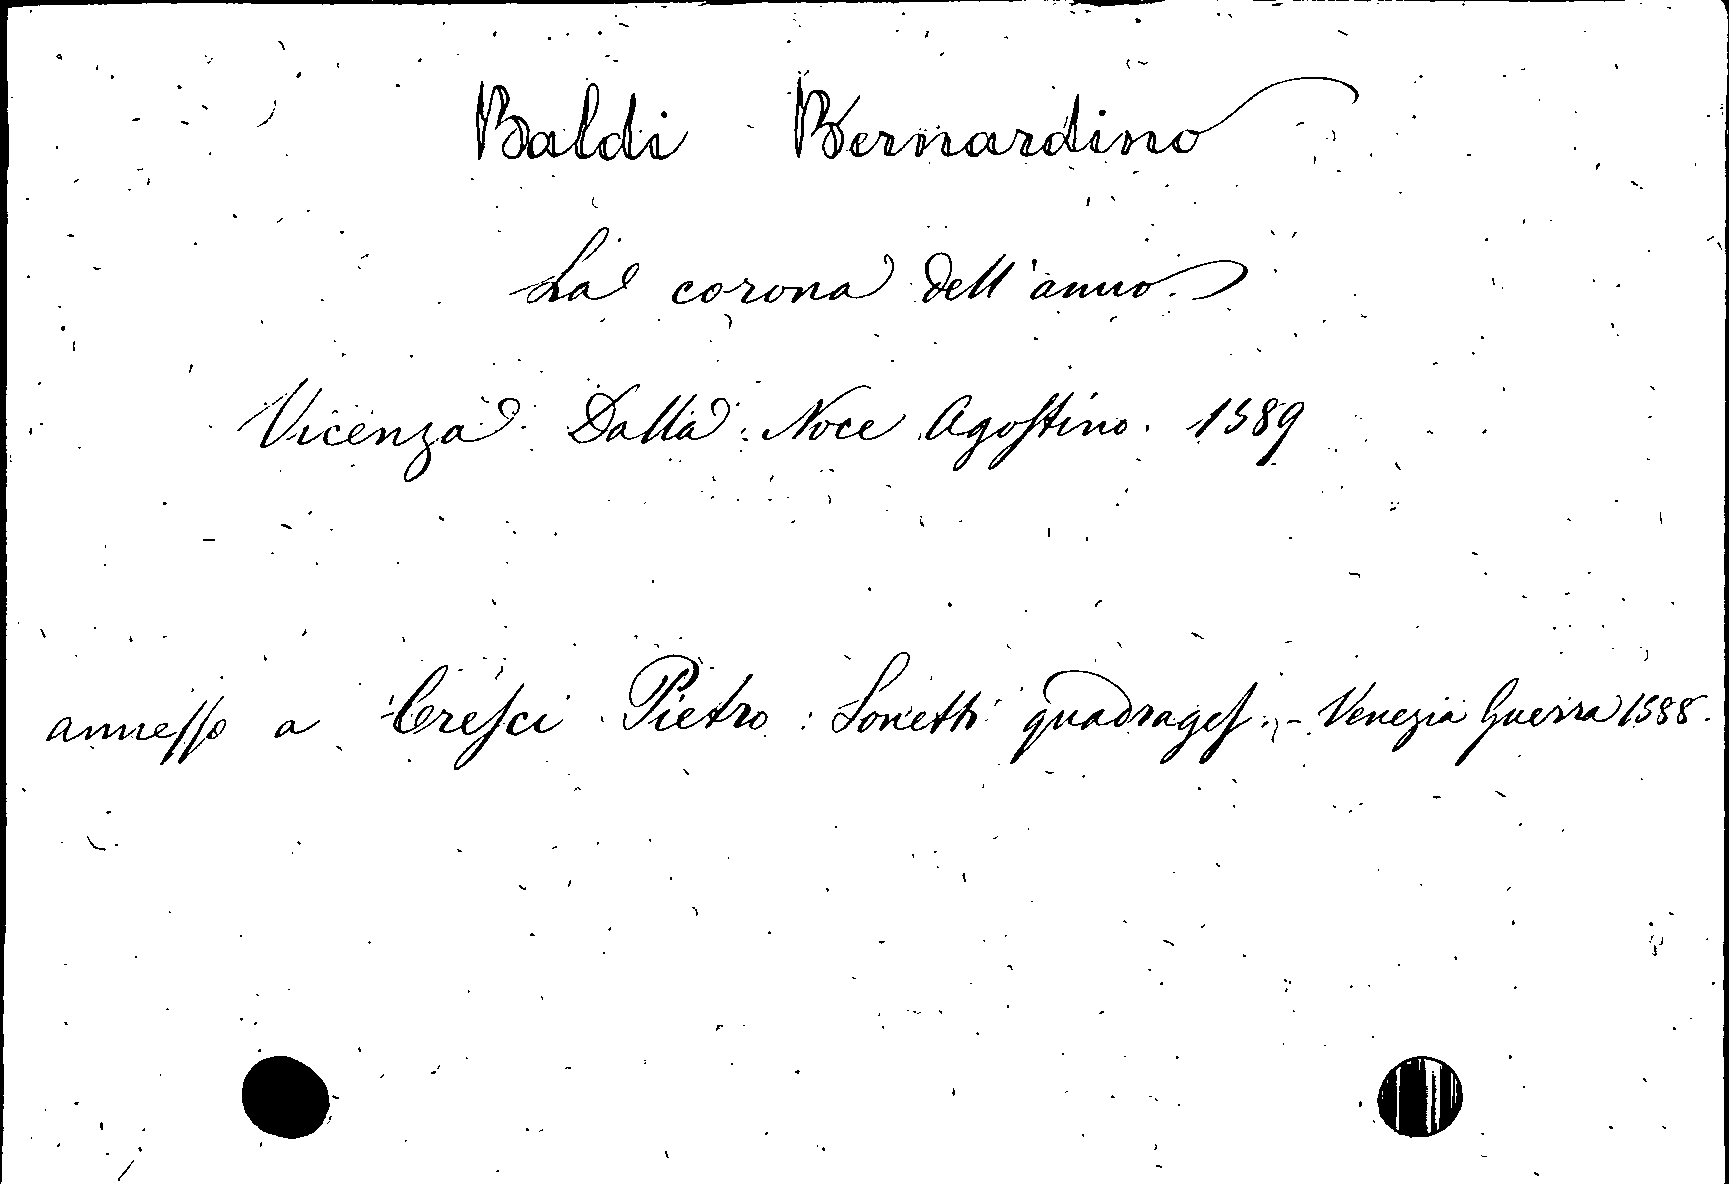 Baldi Bernardino
La corona dell'anno.
Vicenza Dalla Noce Agostino. 1589
annesso a Cresci Pietro: Sonetti quadrages. - Venezia Guerra 1588.